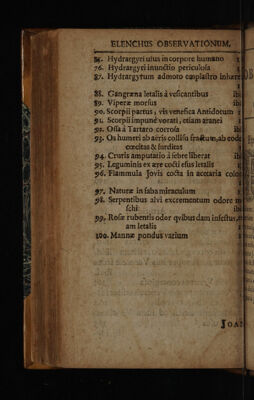 ELENCHUS OBSERVATIONUM.
85. Hydrargyri usus in corpore humano
76. Hydrargyri inunctio periculosa
87. Hydrargyrum admoto emplastro inhære
88. Gangræna letalis à vesicantibus ibi
89. Viperæ morsus ibi
90. Scorpii partus, vis venefica Antidotum
91. Scorpii impunè vorati, etiam aranei
92. Ossa à Tartaro corrosa ibi
93. Os humeri ab aëris collisu fractum, ab eode
cœcitas & surditas
94. Cruris amputatio à febre liberat ibi
95. Leguminis ex ære cocti esus letalis
96. Flammula Jovis cocta in acetaria coloc
97. Naturæ in faba miraculum
98. Serpentibus alvi excrementum odore m
schi ibi
99. Rosæ rubentis odor qvibusdam infestus,
am letalis
100. Mannæ pondus varium
JOAN